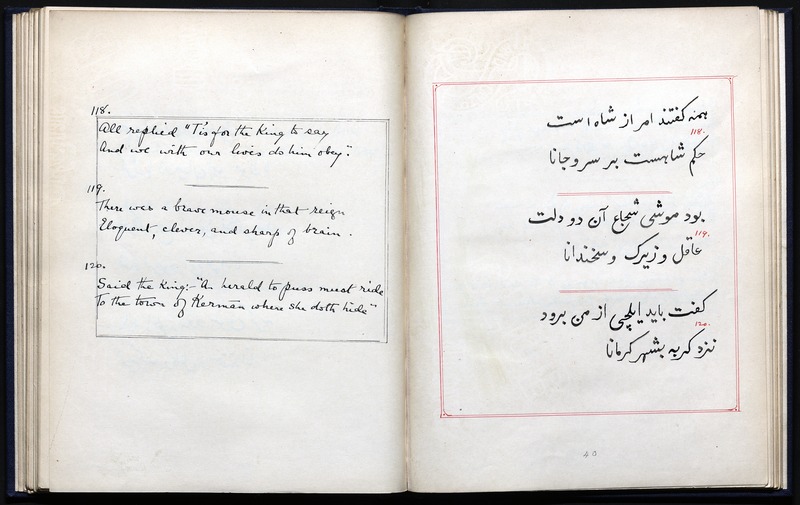 118.
All replied "Tis for the King to say
And we with our lives do him obey".
119.
There was a brave mouse in that reign
Eloquent, clever, and sharp of brain.
120.
Said the King:- "An herald to puss must ride
To the town of Kermān where she doth hide"
همه کفتند امر از شاه است
118.
حکم شاهست بر سر و جانا
بود موشی شجاع آن دو دلت
119.
عاقل و زیرک و سخندانا
کفت باید ایلچی از من برود
120.
نزد کربه بشهر کرمانا
40